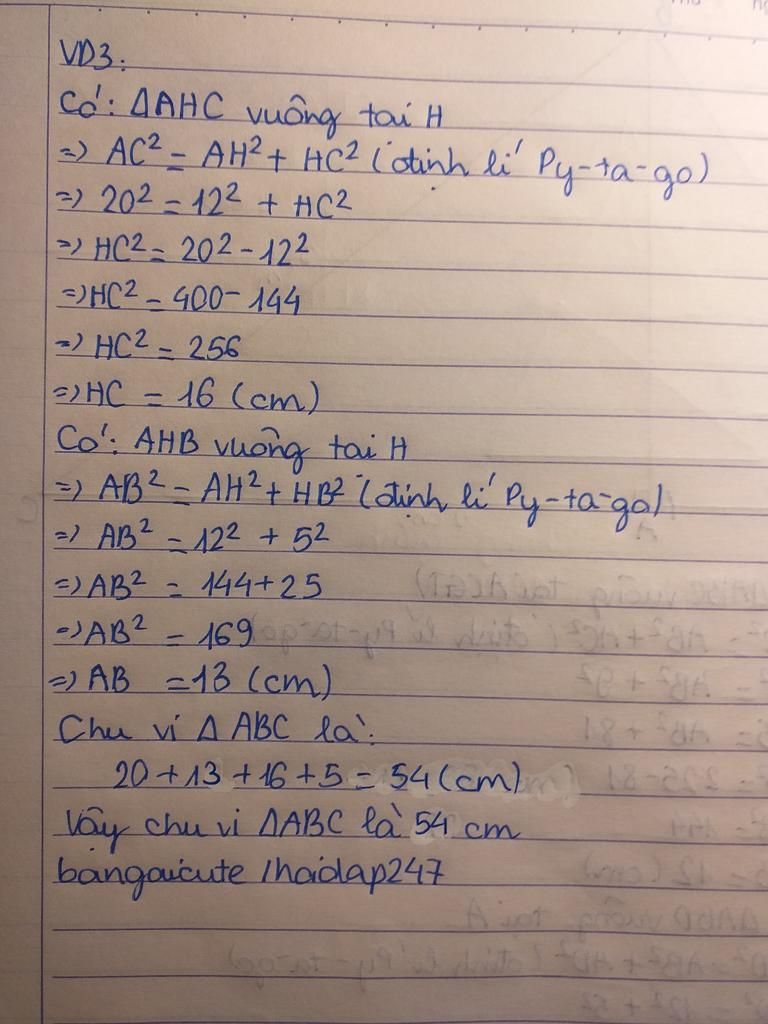 VD3:
Có: ΔAHC vuông tại H
=> AC² = AH² + HC² (định lí Py-ta-go)
=> 20² = 12² + HC²
=> HC² = 20² - 12²
=> HC² = 400 - 144
=> HC² = 256
=> HC = 16 (cm)
Có: AHB vuông tại H
=> AB² = AH² + HB² (định lí Py-ta-go)
=> AB² = 12² + 5²
=> AB² = 144 + 25
=> AB² = 169
=> AB = 13 (cm)
Chu vi Δ ABC là:
20 + 13 + 16 + 5 = 54 (cm)
Vậy chu vi ΔABC là 54 cm
bangaicute /hoidap247